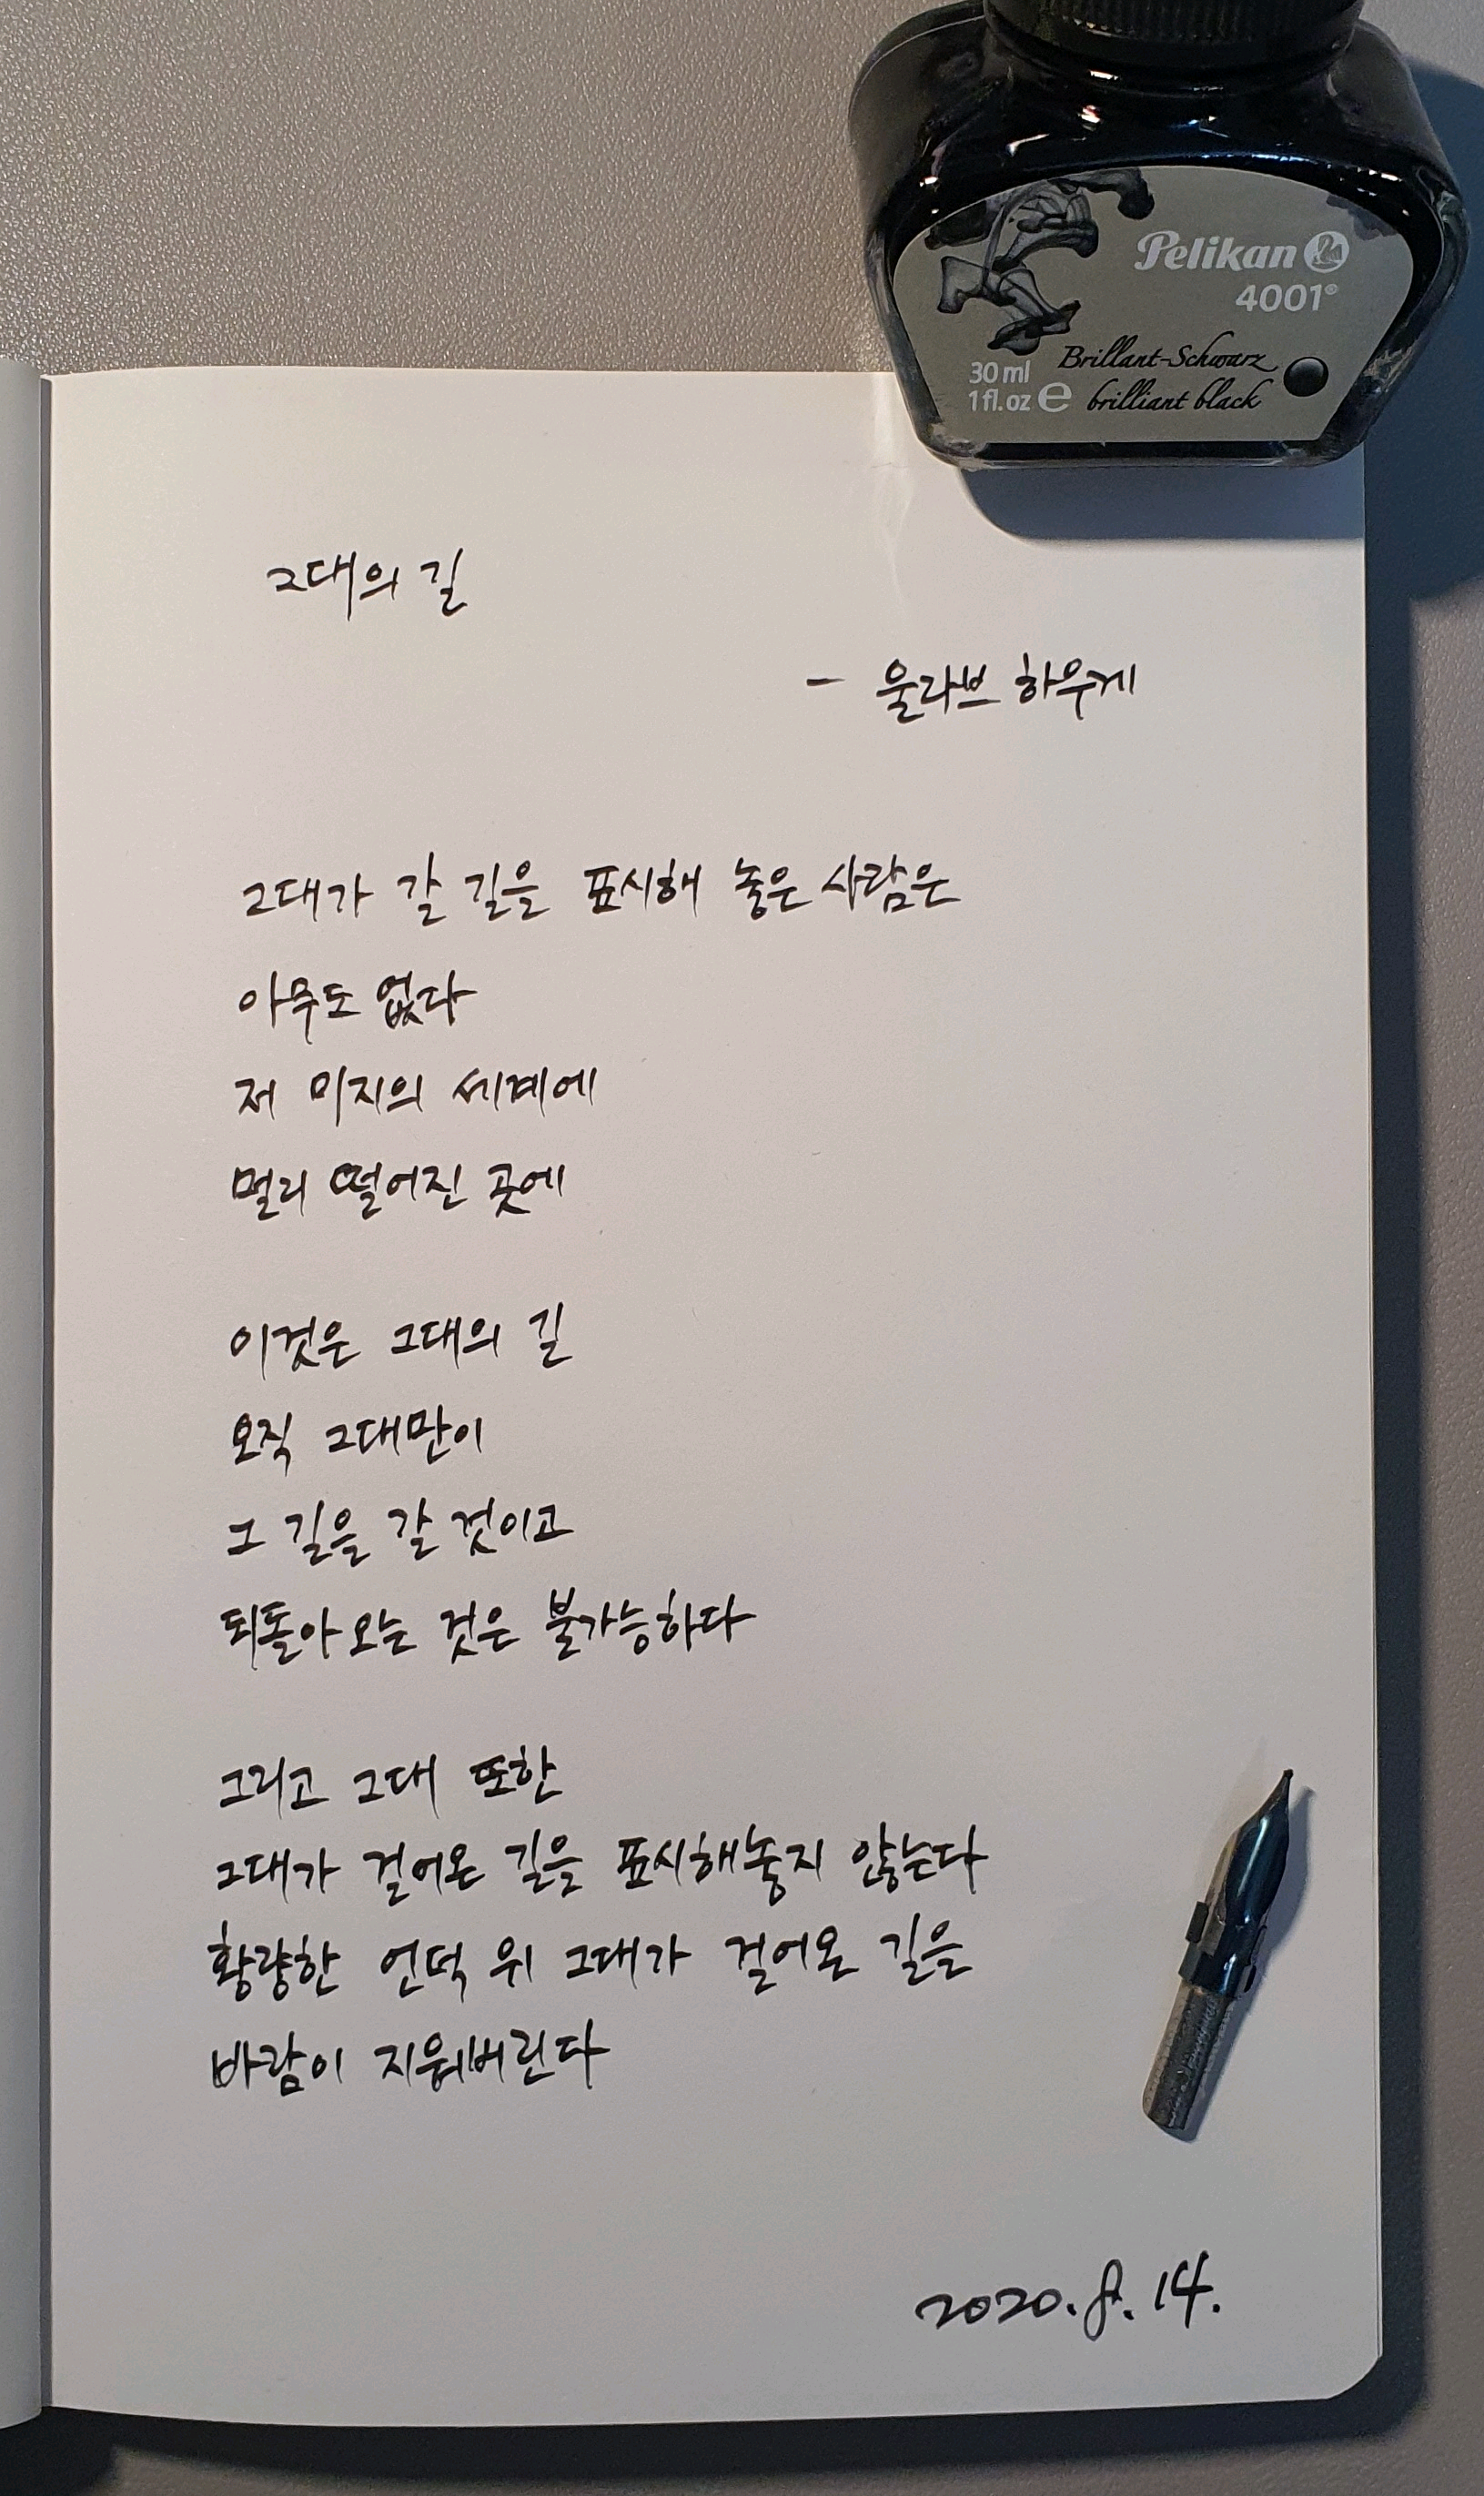 Pelikan
4001®
30 ml
1 fl. oz e
Brillant-Schwarz
brilliant black
그대의 길
- 울라브 하우게
그대가 갈 길을 표시해 놓은 사람은
아무도 없다
저 미지의 세계에
멀리 떨어진 곳에
이것은 그대의 길
오직 그대만이
그 길을 갈 것이고
되돌아오는 것은 불가능하다
그리고 그대 또한
그대가 걸어온 길을 표시해놓지 않는다
황량한 언덕 위 그대가 걸어온 길을
바람이 지워버린다
2020. 8. 14.